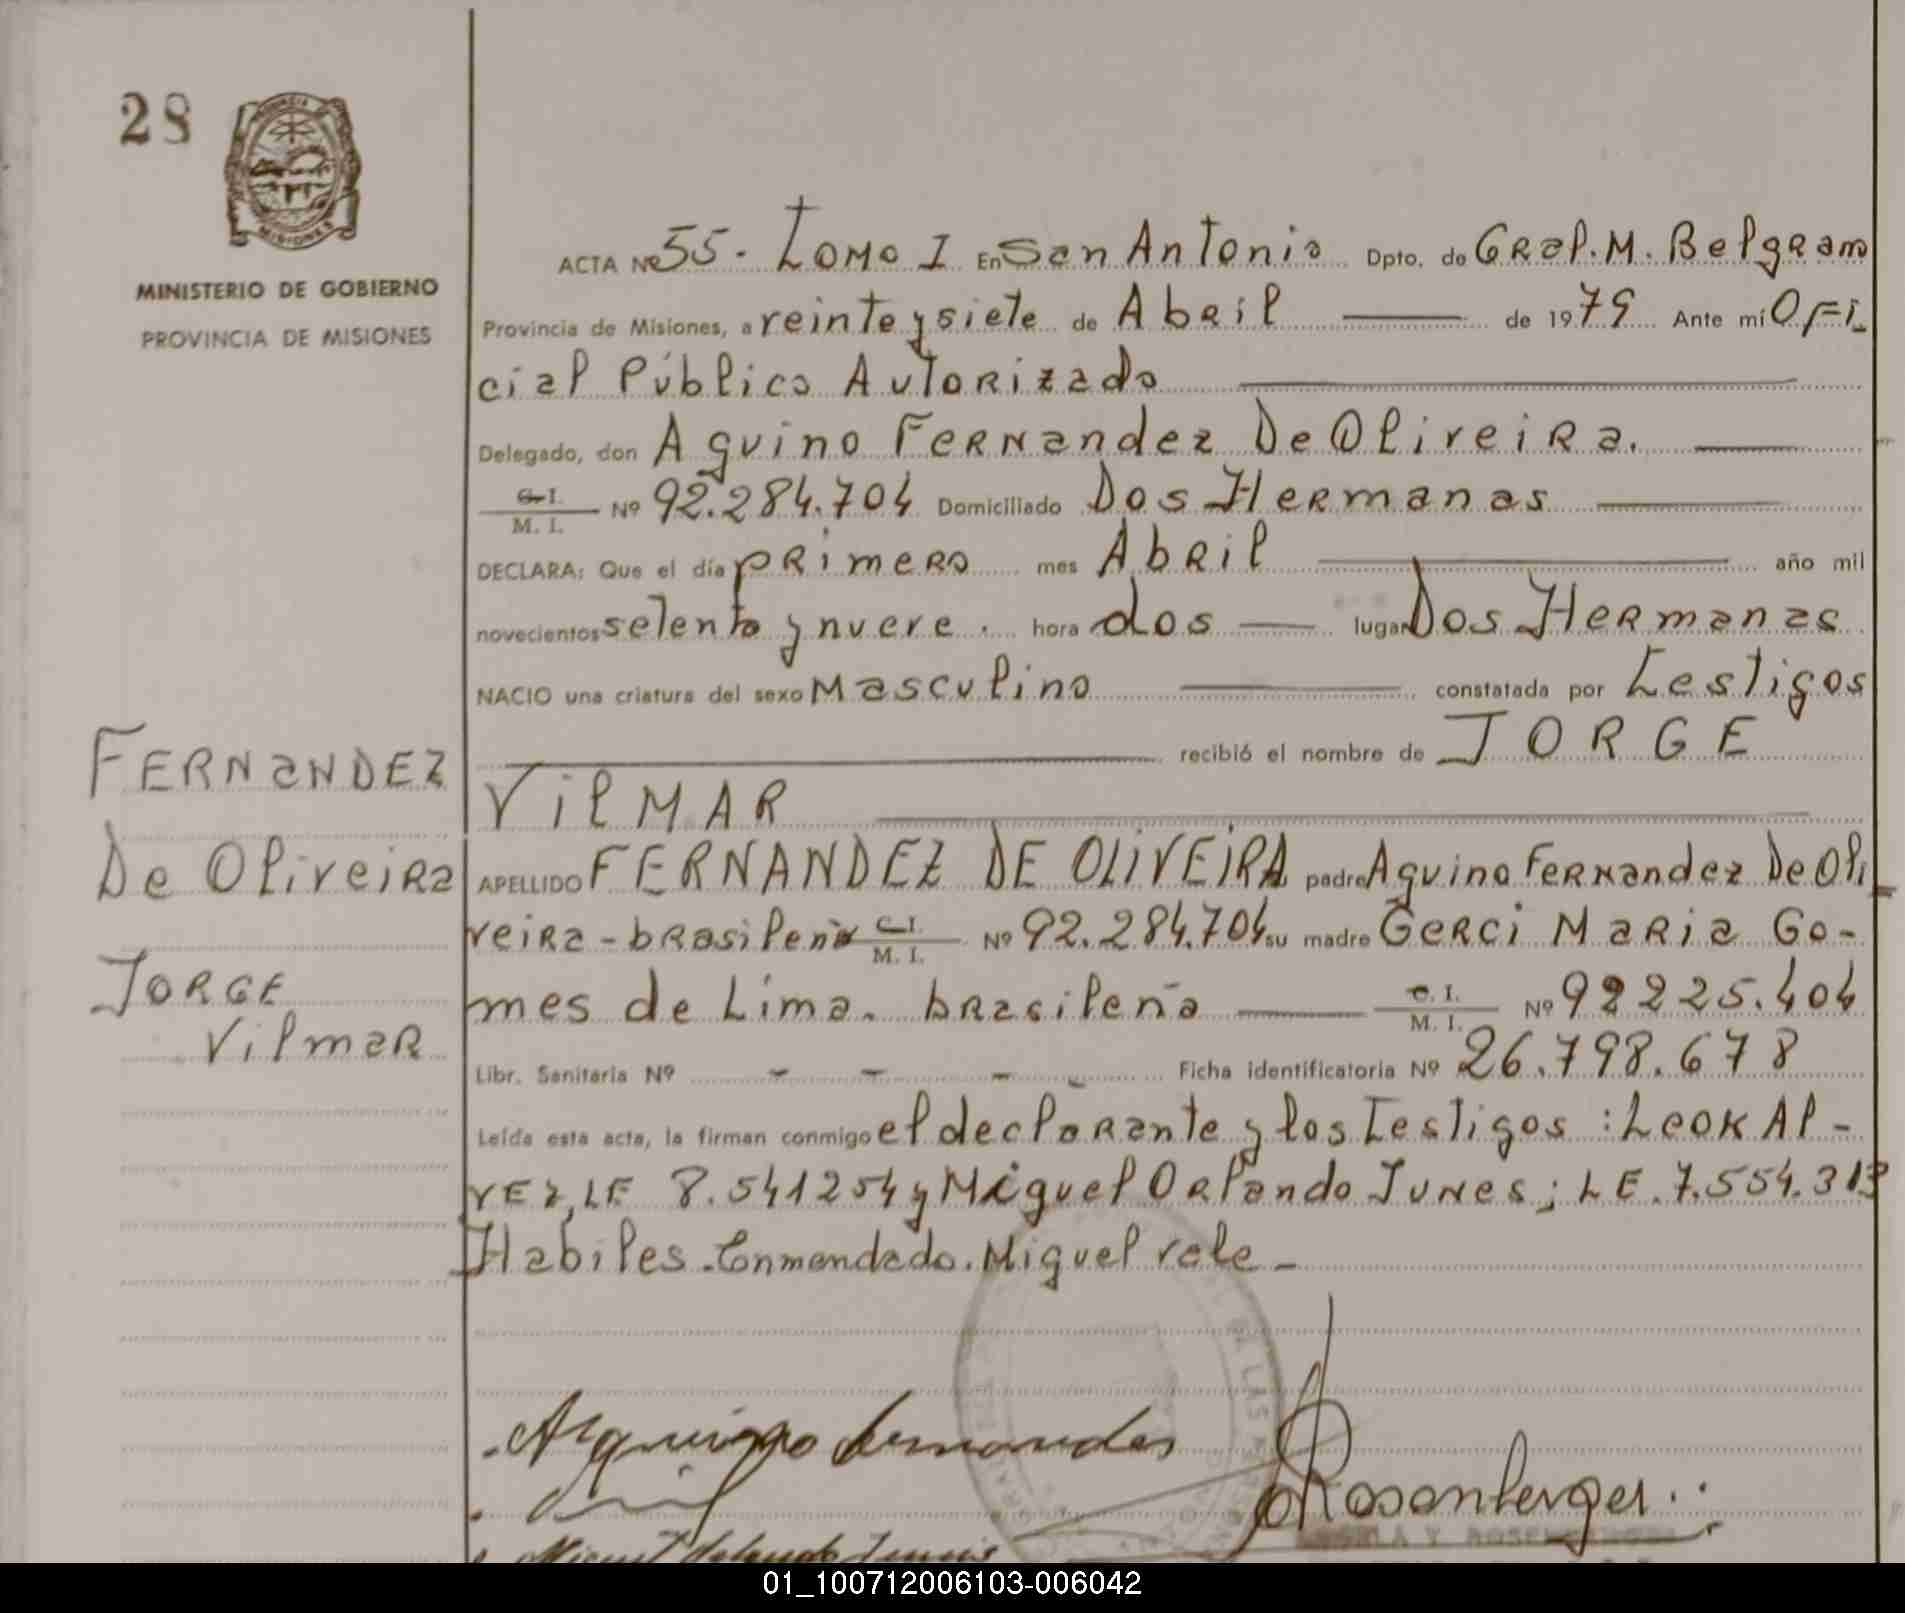 28
MISIONES
MINISTERIO DE GOBIERNO
PROVINCIA DE MISIONES
ACTA Nº 55 - Tomo I En San Antonio Dpto. de Gral. M. Belgrano
Provincia de Misiones, a veinte y siete de Abril de 1979 Ante mí Ofi-
cial Público Autorizado
Delegado, don Aquino Fernandez De Oliveira.
C. I.
M. I. Nº 92.284.704 Domiciliado Dos Hermanas
DECLARA: Que el día primero mes Abril año mil
novecientos setenta y nueve. hora dos lugar Dos Hermanas
NACIO una criatura del sexo Masculino constatada por Testigos
recibió el nombre de JORGE
VilMAR
APELLIDO FERNANDEZ DE OLiVEiRA padre Aquino Fernandez De Oli-
veira - brasileño C. I. M. I. Nº 92.284.704 su madre Gerci Maria Go-
mes de Lima. brasileña C. I. M. I. Nº 92225.404
Libr. Sanitaria Nº - - - - Ficha identificatoria Nº 26.798.678
Leída esta acta, la firman conmigo el declarante y los Testigos: Leok Al-
vez, LE 8.541254 y Miguel Orlando Junes; LE. 7.554.313
Habiles. Enmendado. Miguel vale -
FERNANDEZ
De Oliveira
JORGE
Vilmar
Aquino Fernandes
Rosenberger
01_100712006103-006042